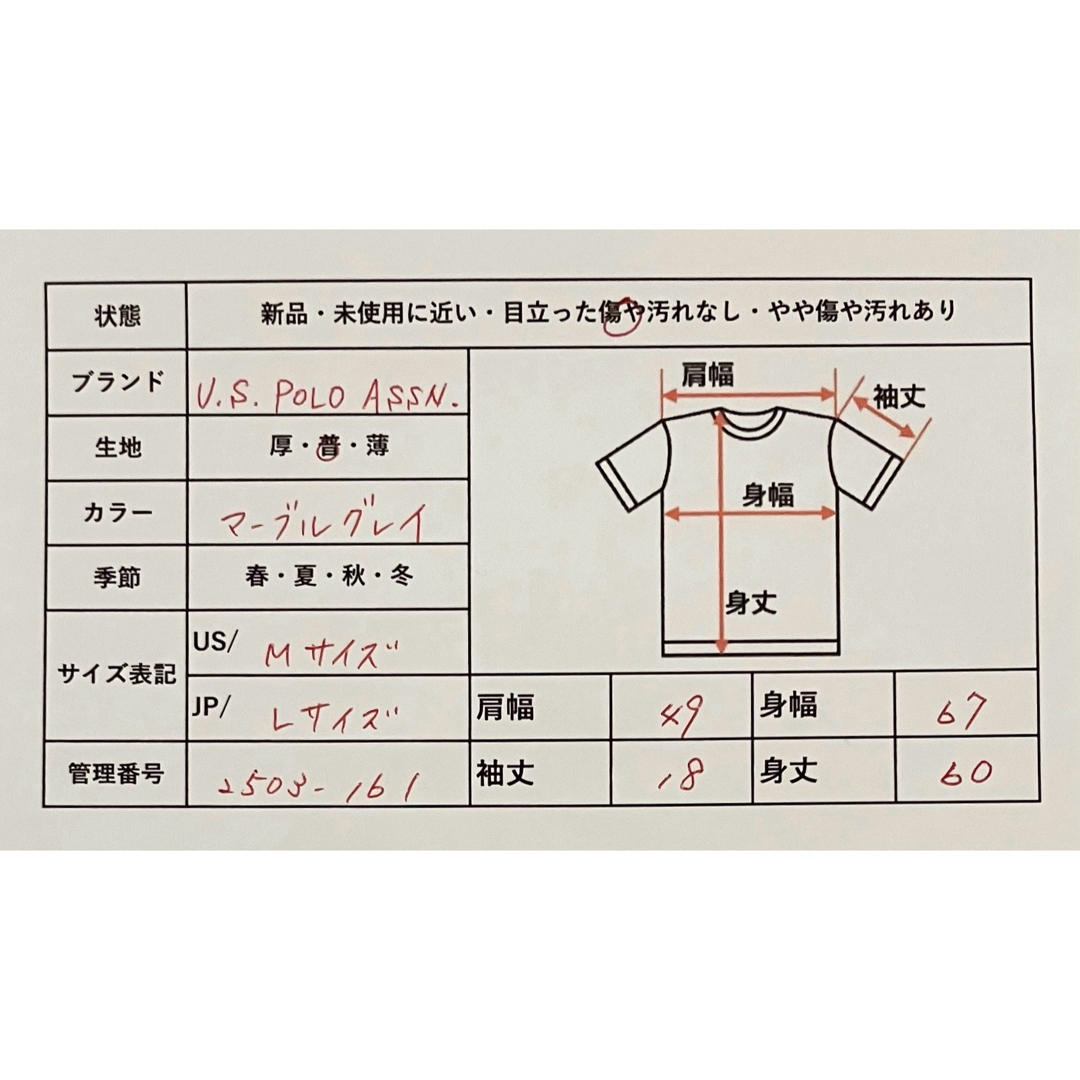 状態 新品・未使用に近い・目立った傷や汚れなし・やや傷や汚れあり
ブランド U.S. POLO ASSN.
生地 厚・普・薄
カラー マーブルグレイ
季節 春・夏・秋・冬
サイズ表記 US/ Mサイズ
JP/ Lサイズ
管理番号 2503-161
肩幅
袖丈
身幅
身丈
肩幅 49 身幅 67
袖丈 18 身丈 60